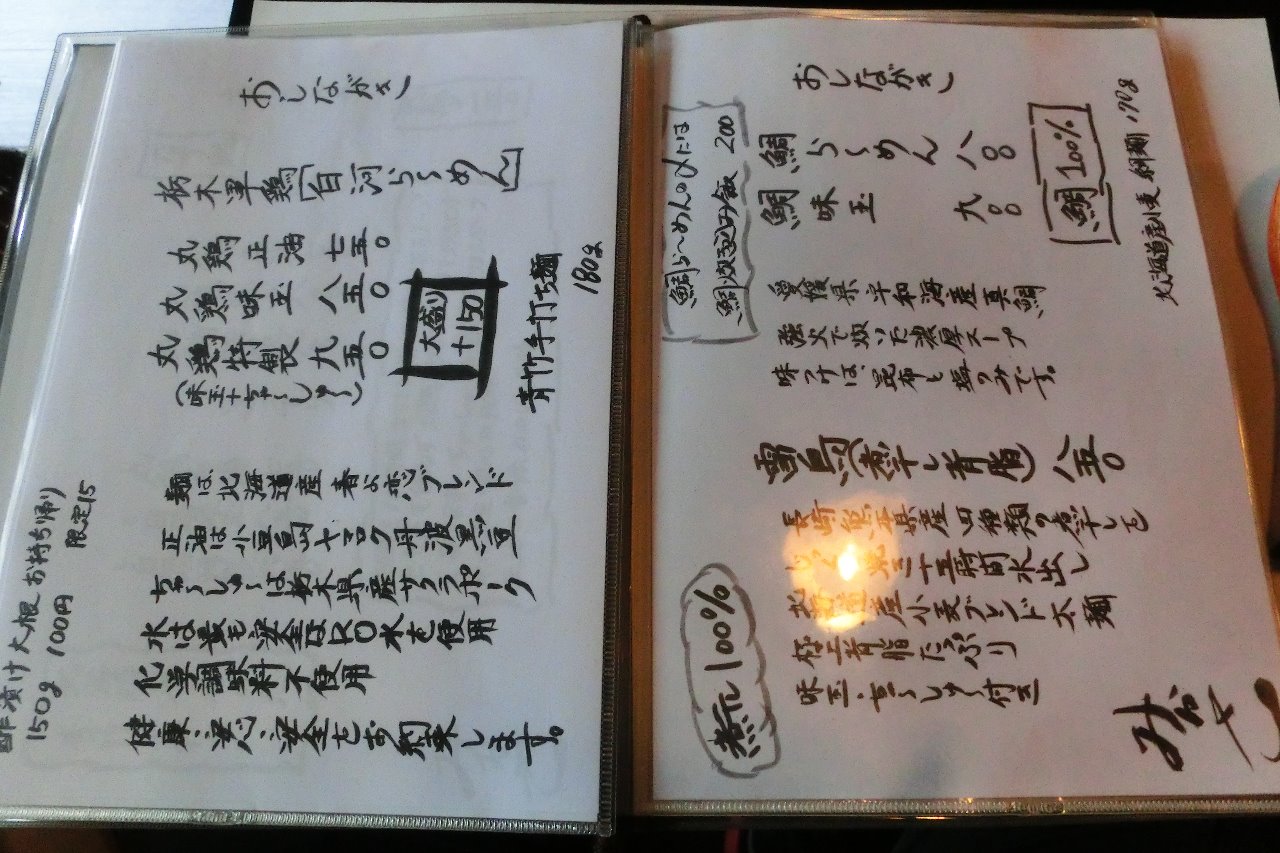 おしながき
栃木軍鶏「白河らーめん」
丸鶏正油 七五〇
丸鶏味玉 八五〇
丸鶏特製 九五〇
(味玉+ちゃーしゅー)
大盛り
+150
青竹手打ち麺
180g
麺は北海道産春よ恋ブレンド
正油は小豆島ヤマロク丹波黒豆
ちゃーしゅーは栃木県産サクラポーク
水は最も安全なRO水を使用
化学調味料不使用
健康・安心・安全をお約束します。
酢漬け大根お持ち帰り
150g 100円 限定15
おしながき
鯛らーめん 八〇〇
鯛味玉 九〇〇
鯛100%
北海道産小麦 細麺 170g
鯛らーめんの〆には
鯛炊き込み飯 200
愛媛県宇和海産真鯛
強火で炊いた濃厚スープ
味つけは、昆布と塩のみです。
雷鳥(煮干し背脂) 八五〇
長崎熊本県産四種類の煮干しを
水出し
北海道産小麦ブレンド太麺
極上背脂たっぷり
味玉・ちゃーしゅー付き
煮干し100%